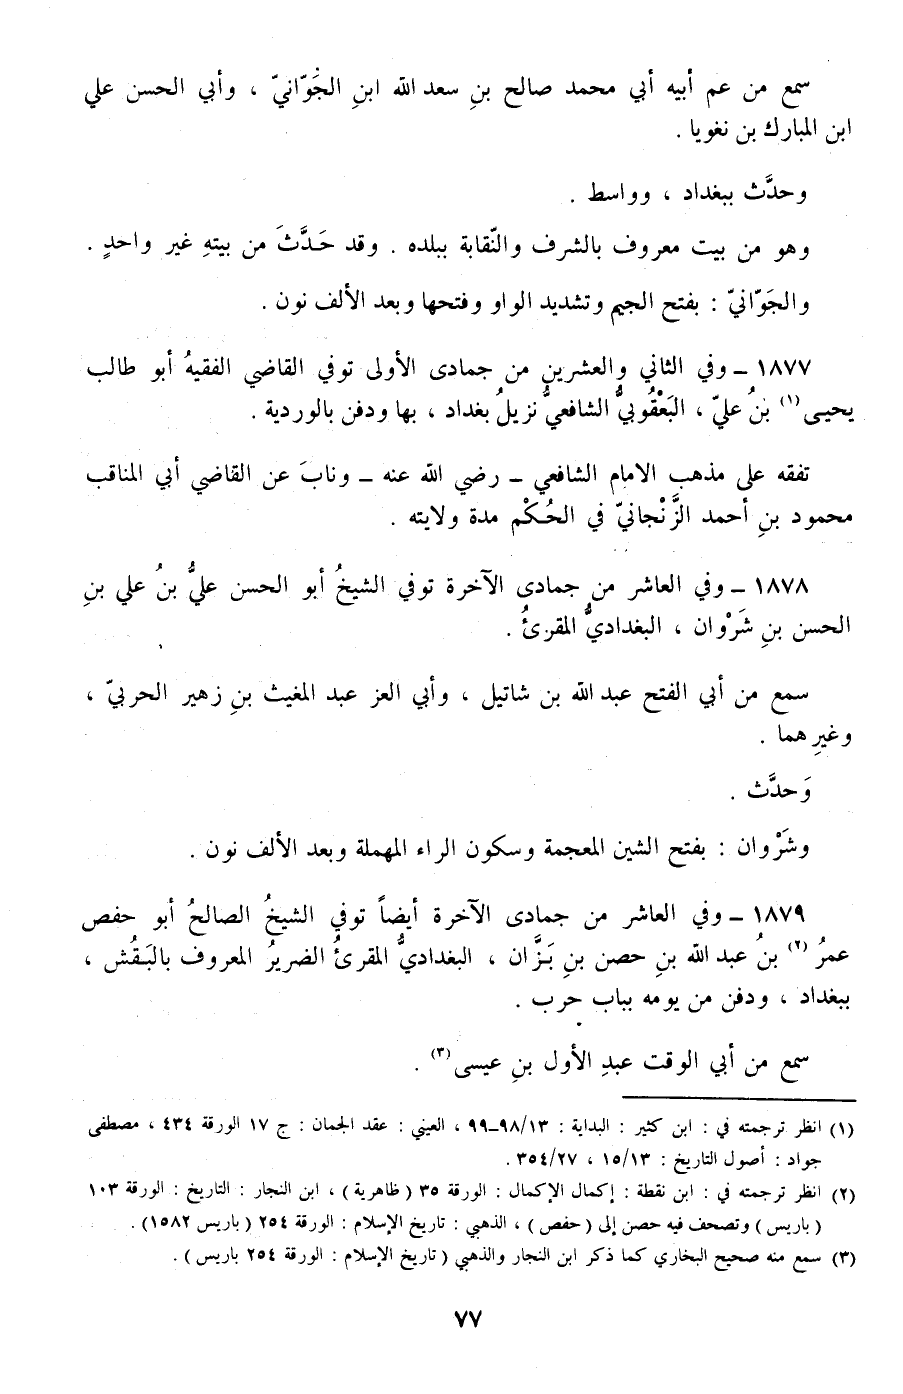 سمع من عم أبيه أبي محمد صالح بنِ سعد الله ابنِ الجَوّانيّ ، وأبي الحسن علي
ابن المبارك بن نغوبا .
وحدَّث ببغداد ، وواسط .
وهو من بيت معروف بالشرف والنّقابة ببلده . وقد حَدَّثَ من بيتهِ غير واحدٍ .
والجَوّانيّ : بفتح الجيم وتشديد الواو وفتحها وبعد الألف نون .
١٨٧٧ ــ وفي الثاني والعشرين من جمادى الأولى توفي القاضي الفقيهُ أبو طالب
يحيـى (١) بنُ عليّ ، البَعْقُوبيُّ الشافعيُّ نزيلُ بغداد ، بها ودفن بالوردية .
تفقه على مذهب الامام الشافعي ــ رضي الله عنه ــ ونابَ عن القاضي أبي المناقب
محمود بنِ أحمد الزَّنْجانيّ في الحُكْم مدة ولايته .
١٨٧٨ ــ وفي العاشر من جمادى الآخرة توفي الشيخُ أبو الحسن عليُّ بنُ علي بنِ
الحسن بنِ شَرْوان ، البغداديُّ المقرئُ .
سمع من أبي الفتح عبد الله بن شاتيل ، وأبي العز عبد المغيث بنِ زهير الحربيّ ،
وغيرِهما .
وَحدَّث .
وشَرْوان : بفتح الشين المعجمة وسكون الراء المهملة وبعد الألف نون .
١٨٧٩ ــ وفي العاشر من جمادى الآخرة أيضاً توفي الشيخُ الصالحُ أبو حفص
عمرُ (٢) بنُ عبد الله بنِ حصن بنِ بَزَّان ، البغداديُّ المقرئُ الضريرُ المعروف بالبَقُش ،
ببغداد ، ودفن من يومه بباب حرب .
سمع من أبي الوقت عبدِ الأول بنِ عيسى (٣) .
(١) انظر ترجمته في : ابن كثير : البداية : ١٣/ ٩٨ــ٩٩ ، العيني : عقد الجمان : ج ١٧ الورقة ٤٣٤ ، مصطفى
جواد : أصول التاريخ : ١٥/١٣ ، ٣٥٤/٢٧ .
(٢) انظر ترجمته في : ابن نقطة : إكمال الإكمال : الورقة ٣٥ ( ظاهرية ) ، ابن النجار : التاريخ : الورقة ١٠٣
( باريس ) وتصحف فيه حصن إلى ( حفص ) ، الذهبي : تاريخ الإسلام : الورقة ٢٥٤ ( باريس ١٥٨٢ ) .
(٣) سمع منه صحيح البخاري كما ذكر ابن النجار والذهبي ( تاريخ الإسلام : الورقة ٢٥٤ باريس ) .
٧٧